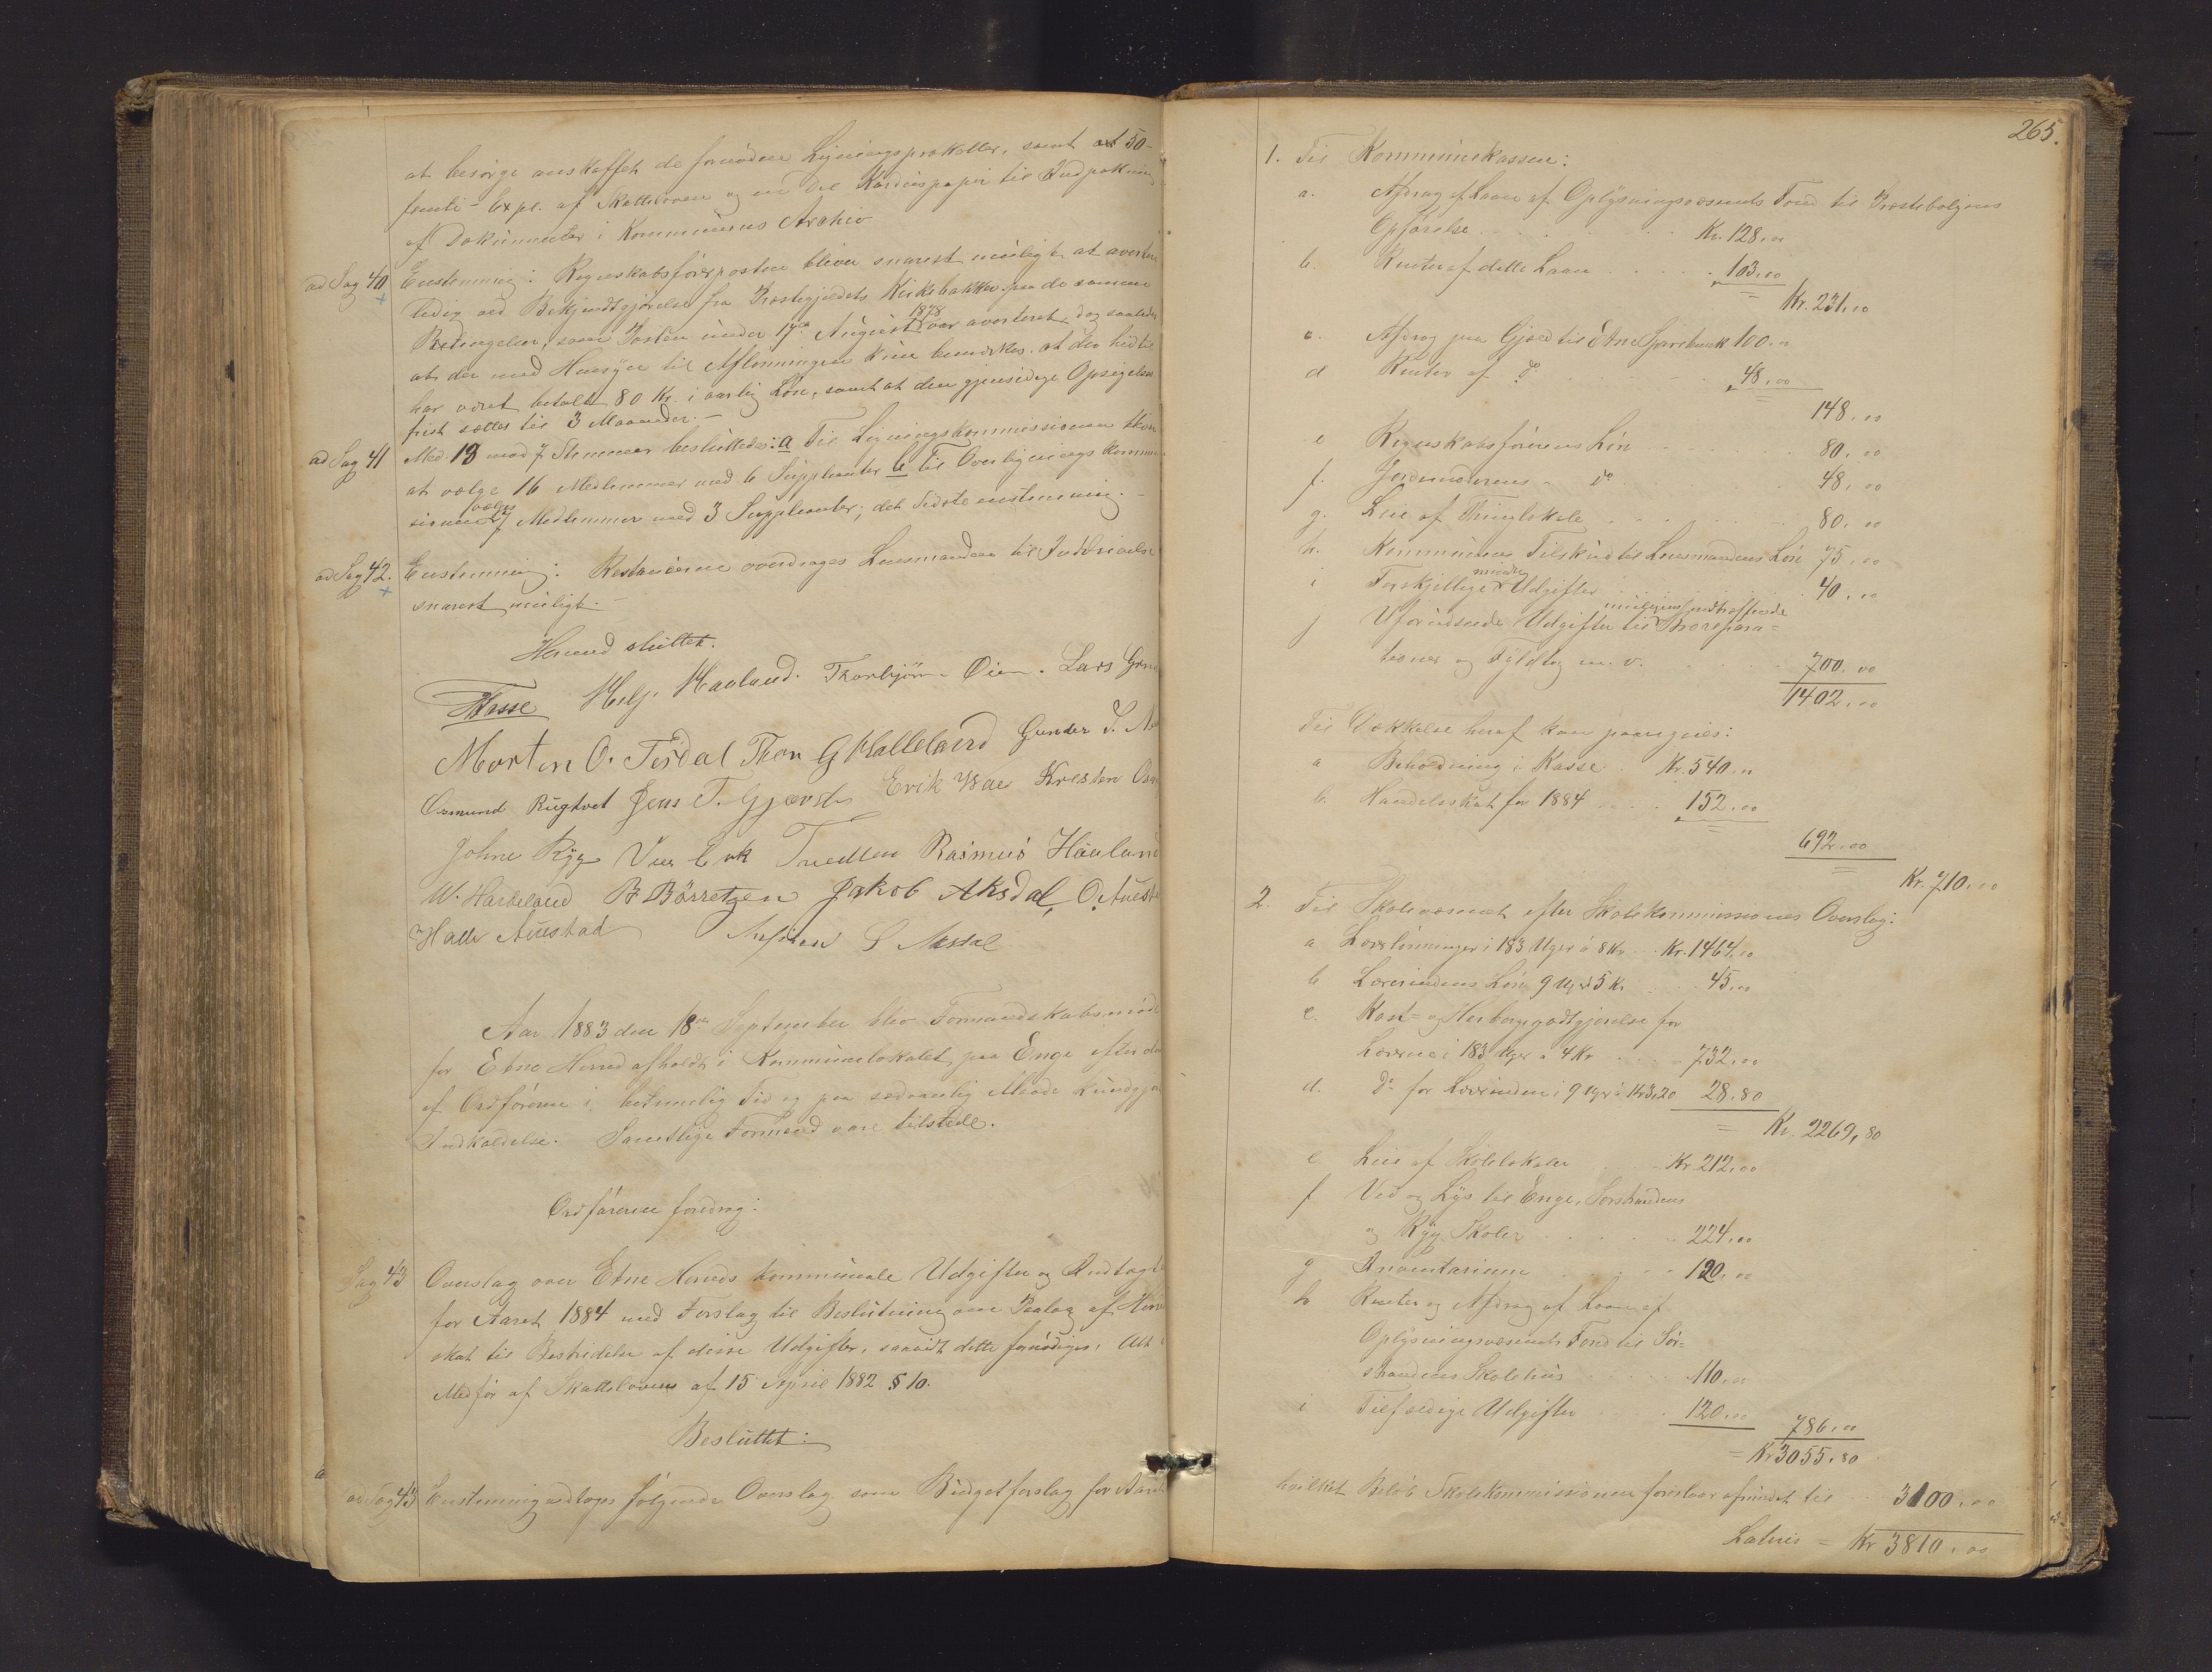 at besørge anskaffet de fornødne Ligningsprokoller, samt at 50-
femti- Expl. af Skatteloven og en Del Karduspapir til Indpakning
af Dokumenter i Kommunens Archiv
ad Sag 40 Enstemmig: Regnskabsførerposten bliver snarest muligt at avertere
ledig ved Bekjendtgjørelse fra Præstegjeldets Kirkebakker paa de samme
Betingelser, som Posten under 17de August 1878 var averteret, dog saaledes
at der med Hensyn til Aflønningen kun bemærkes, at der hidtil
har været betalt 80 Kr. i aarlig Løn, samt at den gjensidige Opsigelses
frist sættes til 3 Maaneder.-
ad Sag 41 Med 13 mod 7 Stemmer besluttedes: a Til Ligningskommissionen
at vælge 16 Medlemmer med 6 Supplenter b Til Overlignings Kommis
sionen vælges 7 Medlemmer med 3 Supplenter; det sidste enstemmig.-
ad Sag 42. Enstemmig: Restancerne overdrages Lensmanden til Inddrivelse
snarest muligt.-
Hermed sluttet.
Fasse Helje Havland. Thorbjørn Øien. Lars
Morten O. Tesdal Thor G Halleland Gunder T.
Osmund Rugtvet Jens T. Gjerde Erik Kresten
Johne Ryg Rasmus Haaland
W. Hardeland B Børretzen Jakob Aksdal, O. Austa
Halle Austad S Næsdal
Aar 1883 den 18de September blev Formandskabsmøde
for Etne Herred afholdt i Kommunelokalet paa Enge efter de
af Ordføreren i betimelig Tid og paa sædvanlig Maade kundgjo
Indkaldelse. Samtlige Formænd vare tilstede.
Ordføreren foredrog:
Sag 43 Overslag over Etne Herreds kommunale Udgifter og Indtægte
for Aaret 1884 med Forslag til Beslutning om Paalæg af Herre
skat til Bestridelse af disse Udgifter, saavidt dette fornødiges, Alt i
Medfør af Skatteloven af 15 April 1882 § 10.
Besluttet:
ad Sag 43 Enstemmig vedtoges følgende Overslag som Budgetforslag for Aaret
265.
1. Til Kommunekassen:
a. Afdrag af Laan af Oplysningsvæsenets Fond til Præsteboligens
Opførelse Kr. 128,00
b. Renter af dette Laan 103,00
= Kr. 231,00
c. Afdrag paa Gjæld til Etne Sparebank 100.00
d Renter af do 48,00
= 148,00
e Regnskabsførerens Løn 80,00
f. Jordemoderens do 48,00
g. Leie af Thinglokale 80,00
h. Kommunens Tilskud til Lensmandens Løn 75,00
i Forskjellige mindre Udgifter 40,00
j Uforudseede Udgifter til muligens indtræffende Brorepara=
tioner og Fyldtog m. v. 700,00
1402,00
Til Dækkelse heraf kan paaregnes:
a Beholdning i Kasse Kr. 540.00
b. Handelsskat for 1884 152,00
= 692,00
= Kr. 710,00
2. Til Skolevæsenet efter Skolekommissionens Overslag:
a Lærerlønninger i 183 Uger à 8 Kr Kr. 1464,00
b Lærerindens Løn 9 Uger à 5 Kr. 45,00
c. Kost- og Herbergegodtgjørelse for
Lærerne i 183 Uger à 4 Kr 732,00
d. do for Lærerinden i 9 Uger à Kr 3,20 28,80
= Kr. 2269,80
e Leie af Skolelokaler Kr 212,00
f Ved og Lys til Enge, Sørstrandens
og Ryg Skoler 224,00
g Inventarium 120,00
h Renter og Afdrag af Laan af
Oplysningsvæsenets Fond til Sør=
strandens Skolehus 110,00
i Tilfældige Udgifter 120,00 786,00
= Kr 3055,80
hvilket Beløb Skolekommissionen foreslaar afrundet til 3100,00
Latus = Kr 3810,00